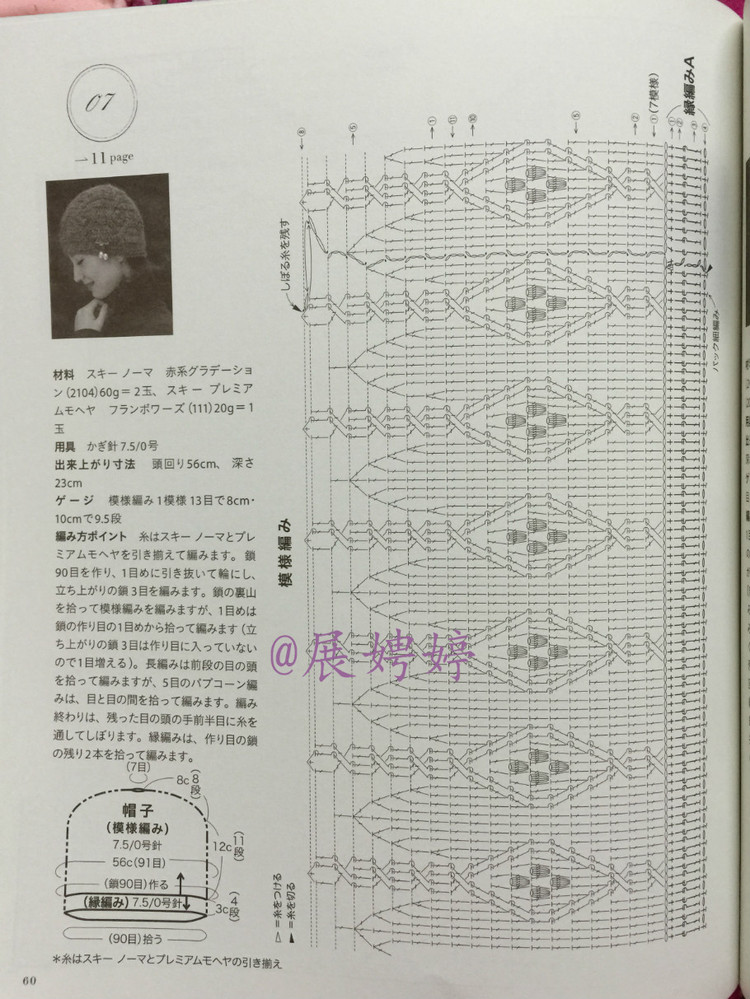 07
→11 page
材料　スキー ノーマ　赤系グラデーショ
ン(2104)60g＝2玉、スキー プレミア
ムモヘヤ　フランボワーズ(111)20g＝1
玉
用具　かぎ針7.5/0号
出来上がり寸法　頭回り56cm、深さ
23cm
ゲージ　模様編み1模様13目で8cm・
10cmで9.5段
編み方ポイント　糸はスキー ノーマとプレ
ミアムモヘヤを引き揃えて編みます。鎖
90目を作り、1目めに引き抜いて輪にし、
立ち上がりの鎖3目を編みます。鎖の裏山
を拾って模様編みを編みますが、1目めは
鎖の作り目の1目めから拾って編みます（立
ち上がりの鎖3目は作り目に入っていない
ので1目増える）。長編みは前段の目の頭
を拾って編みますが、5目のパプコーン編
みは、目と目の間を拾って編みます。編み
終わりは、残った目の頭の手前半目に糸を
通してしぼります。縁編みは、作り目の鎖
の残り2本を拾って編みます。
(7目)
8c(8段)
帽子
(模様編み)
7.5/0号針
12c(11段)
56c(91目)
(鎖90目)作る
(縁編み)7.5/0号針
3c(4段)
(90目)拾う
＊糸はスキー ノーマとプレミアムモヘヤの引き揃え
60
模様編み
しぼる糸を残す
▷＝糸をつける
▶＝糸を切る
←⑧
→⑤
→①
←⑪
→⑩
←⑤
→②
←①(7模様)
縁編みA
→①
←②
→③
←④
バック細編み
@展娉婷